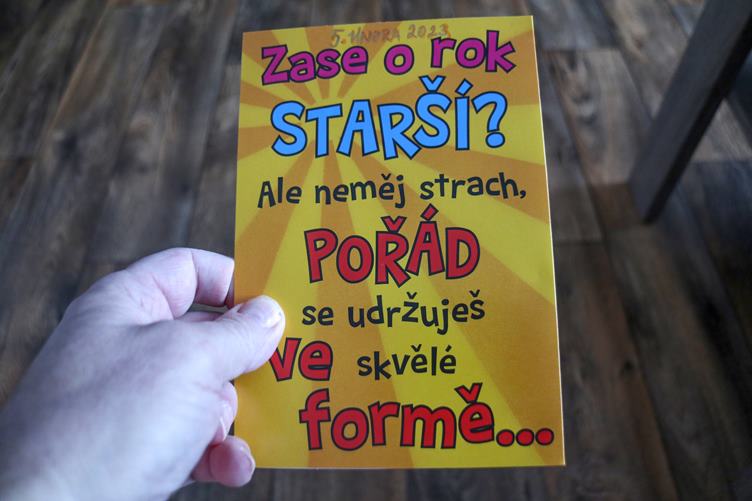 5. ÚNORA 2023
Zase o rok
STARŠÍ?
Ale neměj strach,
POŘÁD
se udržuješ
ve skvělé
formě...